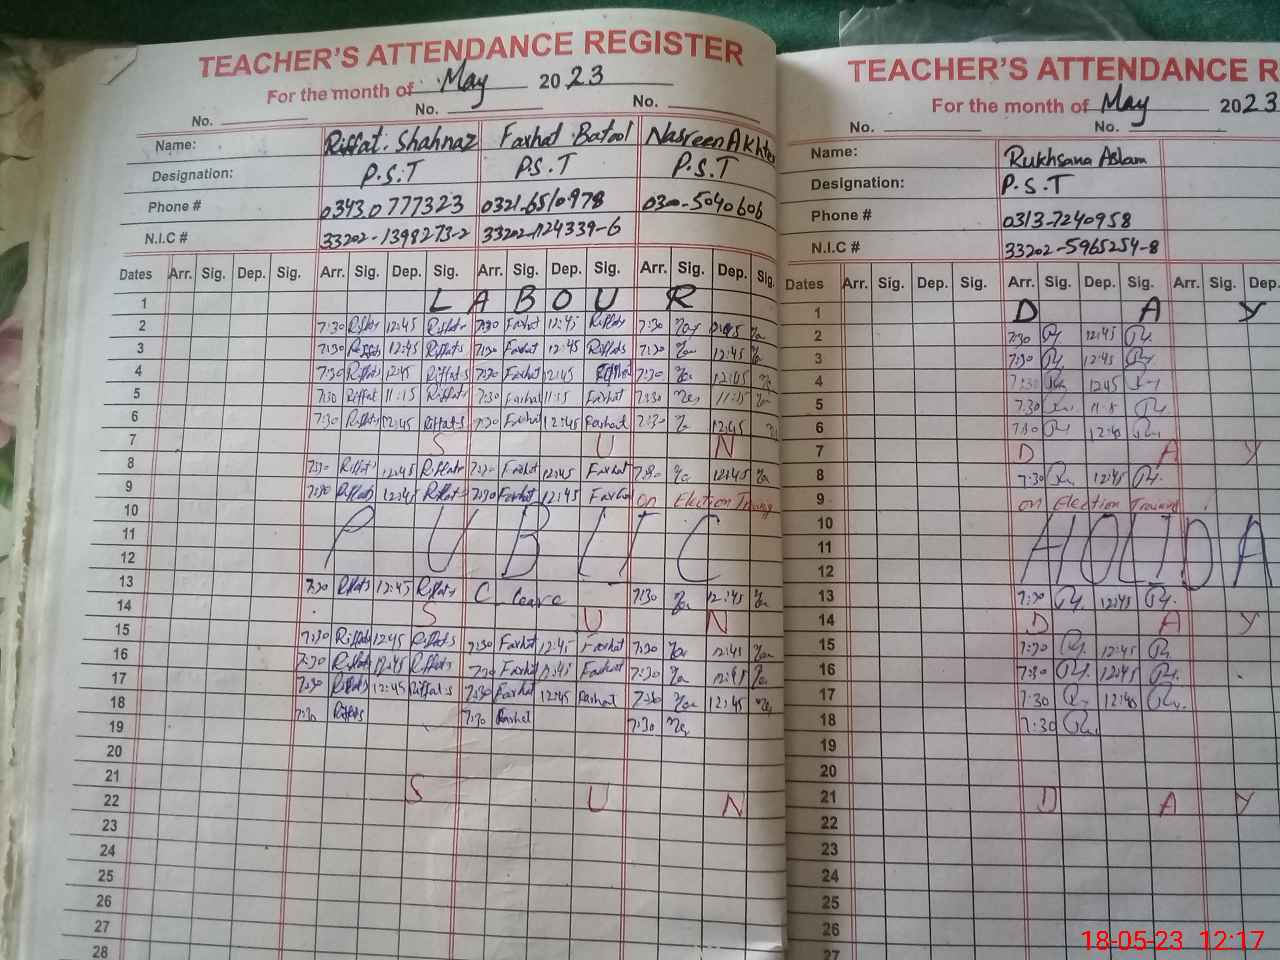 TEACHER'S ATTENDANCE REGISTER
For the month of May 2023
No. No. No.
Name: Riffat. Shahnaz Farhat Batool Nasreen Akhter
Designation: P.S.T P.S.T P.S.T
Phone # 0343.0777323 0321-6510978 0300-5040606
N.I.C # 33202-1398273-2 33202-1124339-6
Dates Arr. Sig. Dep. Sig. Arr. Sig. Dep. Sig. Arr. Sig. Dep. Sig. Arr. Sig. Dep. Sig.
1 L A B O U R
2 7:30 Riffats 12:45 Riffats 7:30 Farhat 12:45 Riffats 7:30 12:45
3 7:30 Riffats 12:45 Riffats 7:30 Farhat 12:45 Riffats 7:30 12:45
4 7:30 Riffats 12:45 Riffats 7:30 Farhat 12:45 7:30 12:45
5 7:30 Riffat 11:15 Riffats 7:30 Farhat 11:15 Farhat 7:30 11:15
6 7:30 Riffats 12:45 Riffats 7:30 Farhat 12:45 Farhat 7:30 12:45
7 S U N
8 7:30 Riffats 12:45 Riffats 7:30 Farhat 12:45 Farhat 7:30 12:45
9 7:30 Riffats 12:45 Riffats 7:30 Farhat 12:45 Farhat on Election Training
10
11 P U B L I C
12
13 7:30 Riffats 12:45 Riffats C_Leave 7:30 12:45
14 S U N
15 7:30 Riffats 12:45 Riffats 7:30 Farhat 12:45 Farhat 7:30 12:45
16 7:30 Riffats 12:45 Riffats 7:30 Farhat 12:45 Farhat 7:30 12:45
17 7:30 Riffats 12:45 Riffats 7:30 Farhat 12:45 Farhat 7:30 12:45
18 7:30 Riffats 7:30 Farhat 7:30
19
20
21 S U N
22
23
24
25
26
27
28
TEACHER'S ATTENDANCE R
For the month of May 2023
No. No.
Name: Rukhsana Aslam
Designation: P.S.T
Phone # 0313-7240958
N.I.C # 33202-5965254-8
Dates Arr. Sig. Dep. Sig. Arr. Sig. Dep. Sig. Arr. Sig. Dep.
1 D A Y
2 7:30 12:45
3 7:30 12:45
4 7:30 12:45
5 7:30 11:15
6 7:30 12:45
7 D A Y
8 7:30 12:45
9 on Election Training
10
11 H O L I D A
12
13 7:30 12:45
14 D A Y
15 7:30 12:45
16 7:30 12:45
17 7:30 12:45
18 7:30
19
20
21 D A Y
22
23
24
25
26
27
18-05-23 12:17